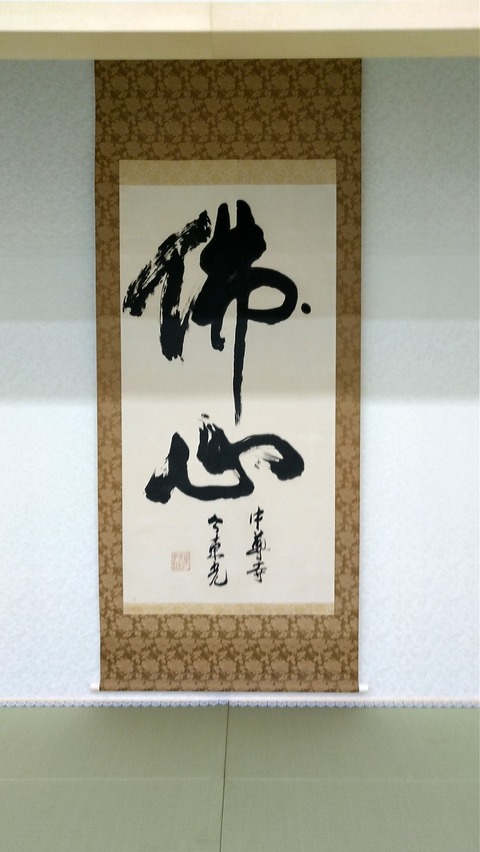 佛心
中尊寺
今東光